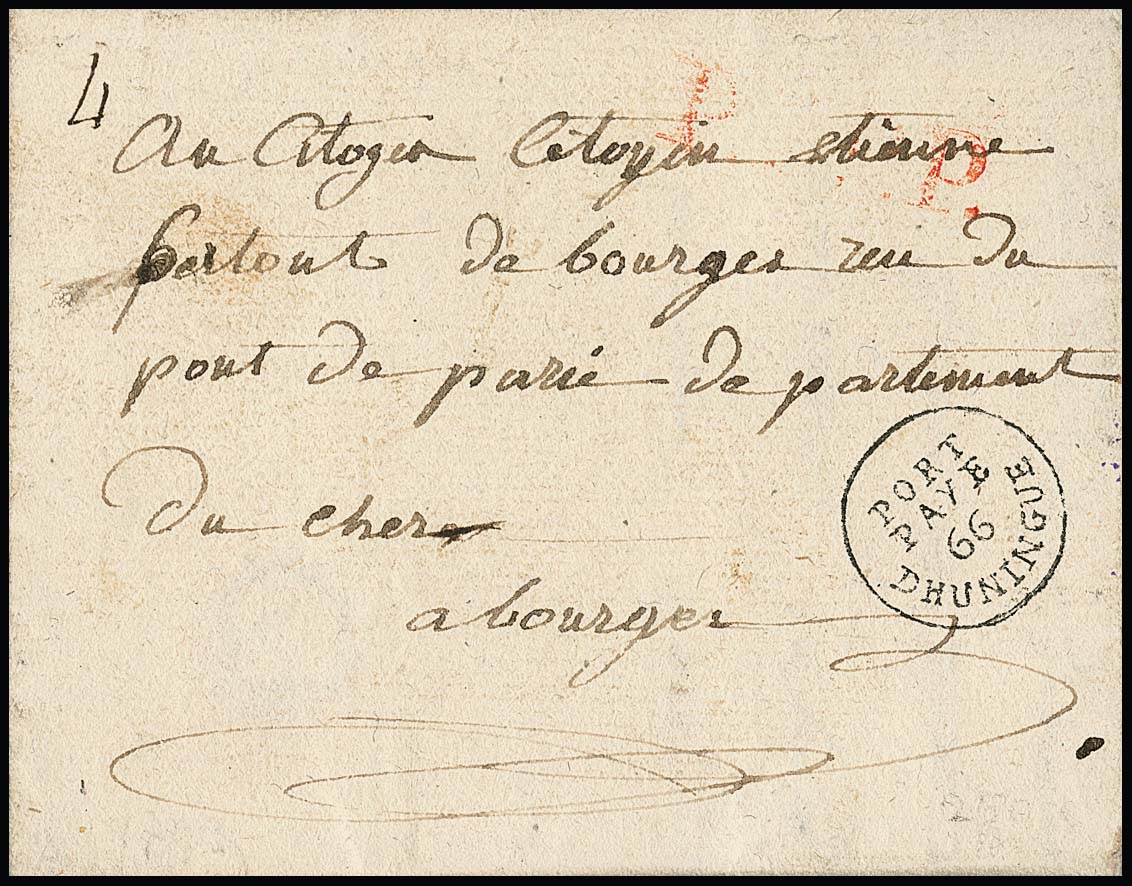 4
P. P.
au Citoyen Citoyin etienne
de bourges reu du
pont de parié de partement
du cher
a bourges
PORT
PAYÉ
66
DHUNINGUE